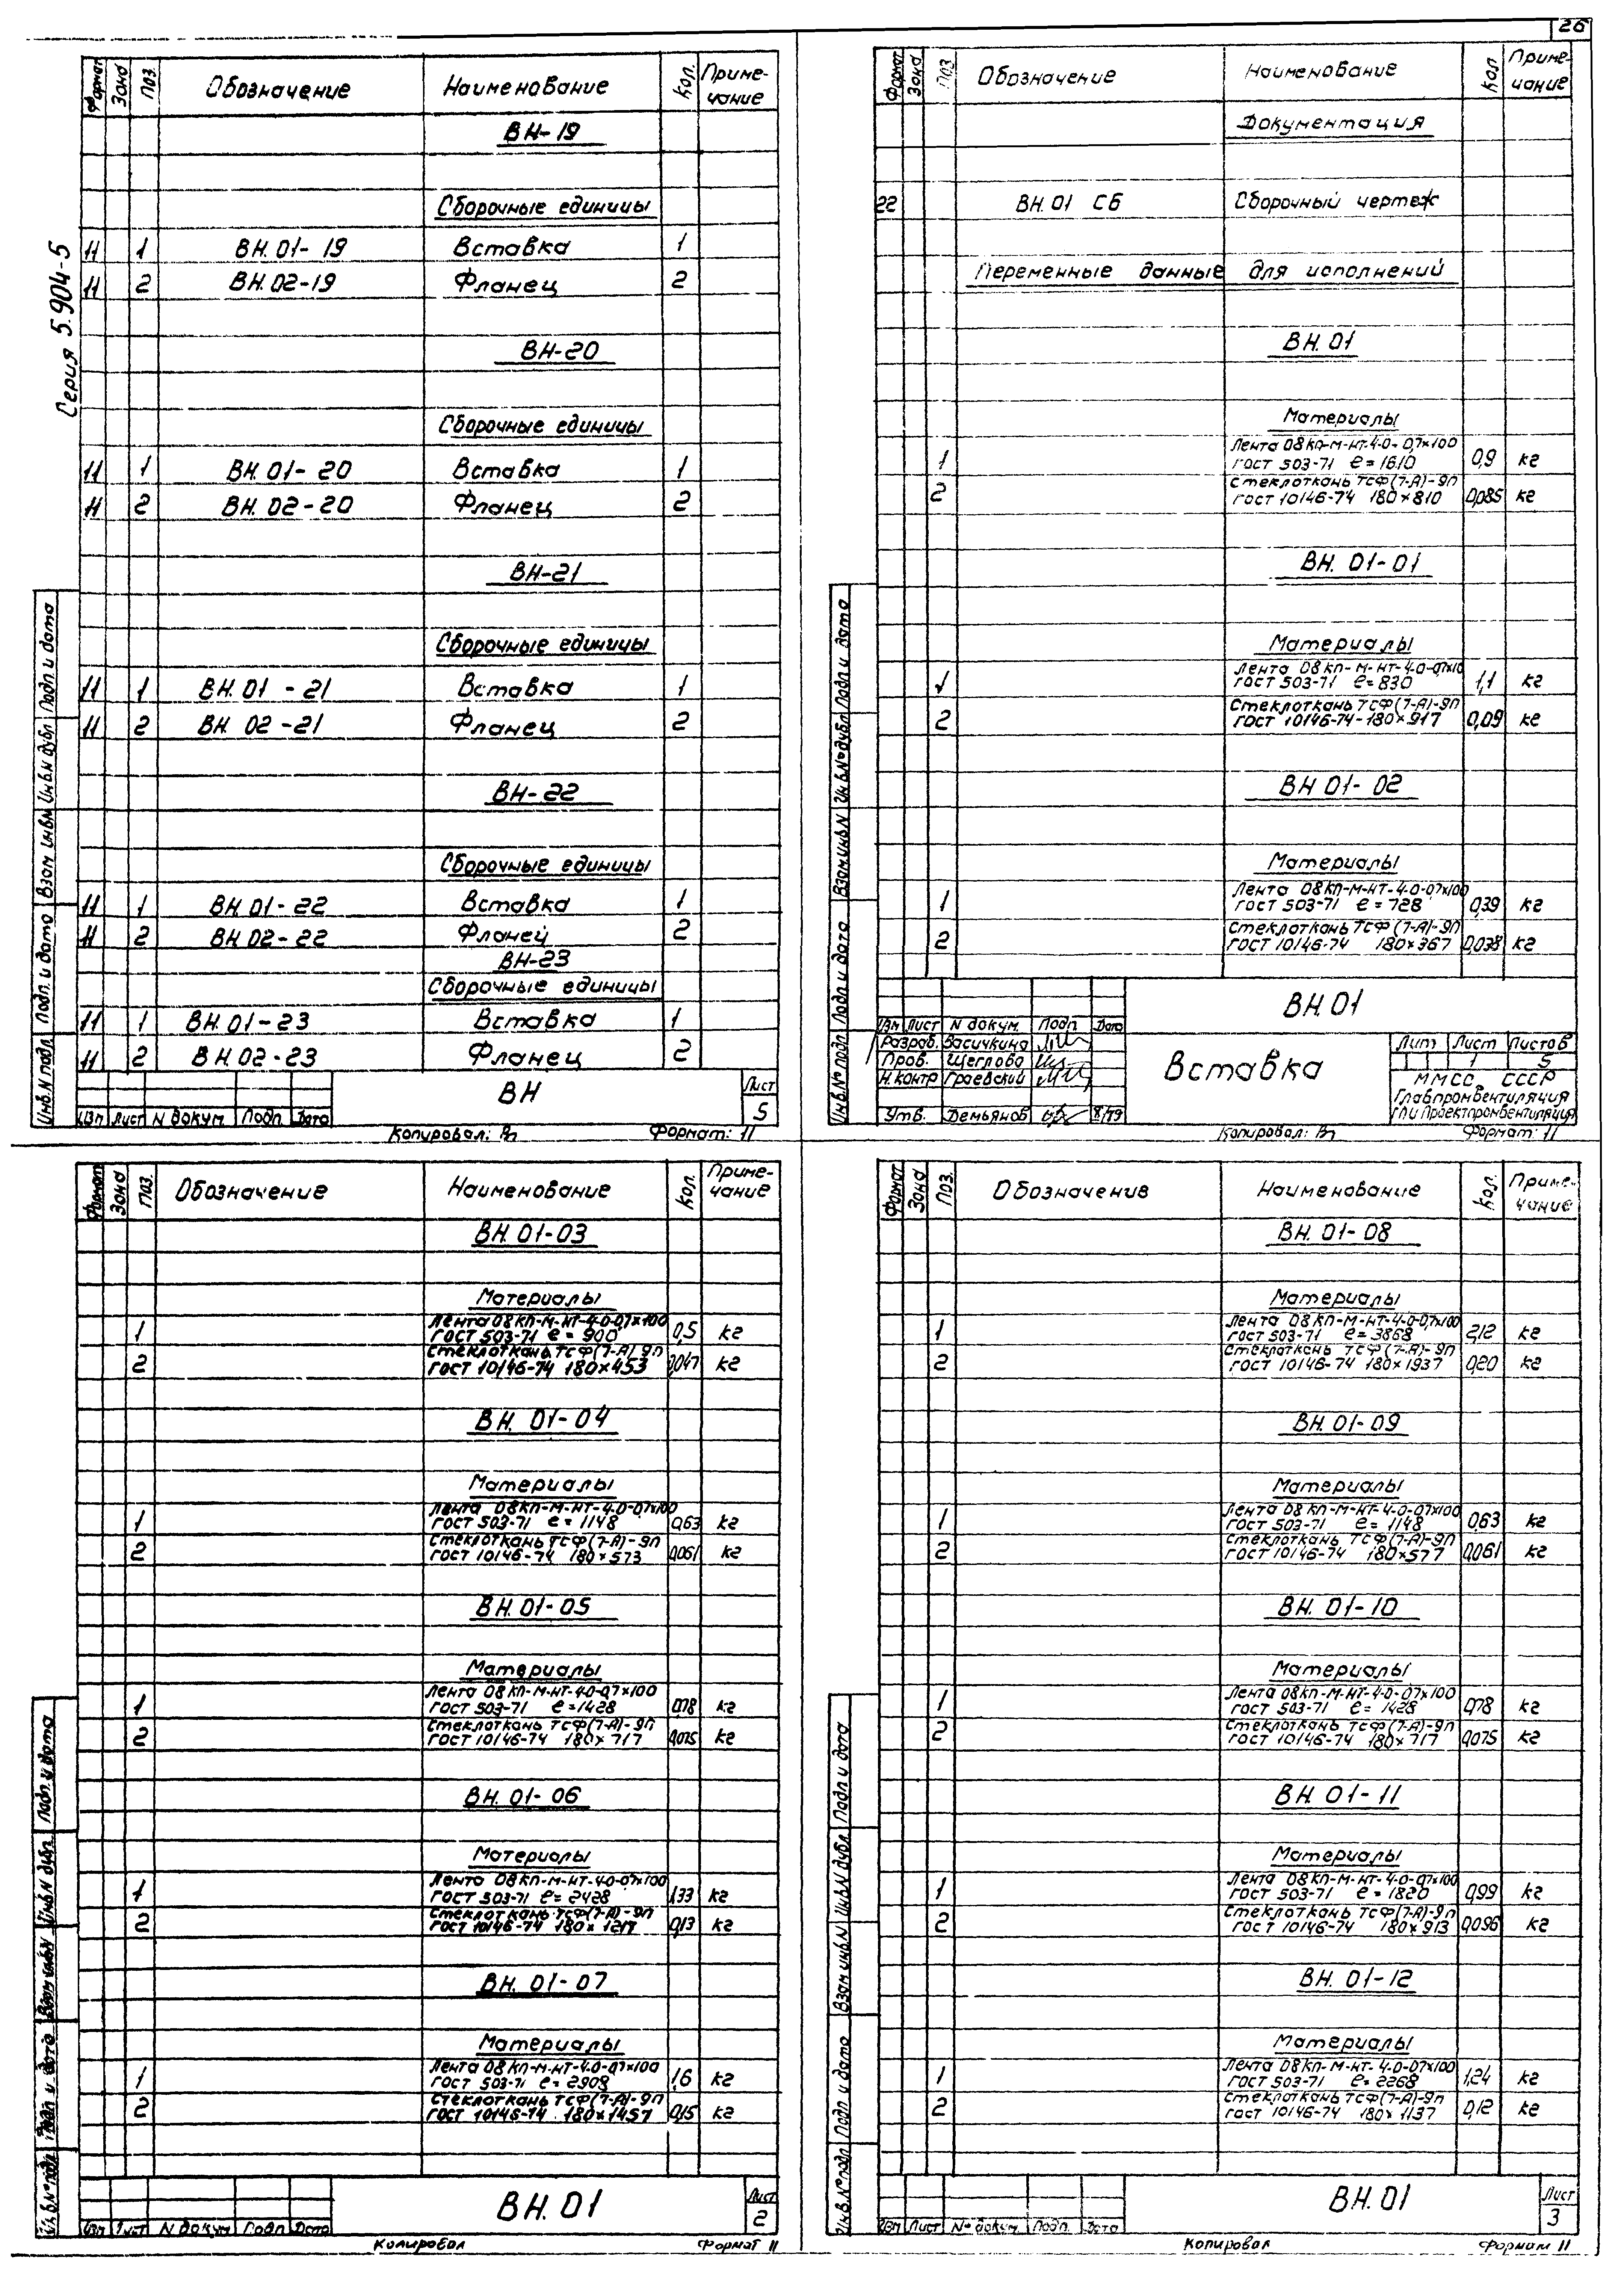 26
Серия 5.904-5
Формат Зона Поз. Обозначение Наименование Кол. Приме-
чание
ВН-19
Сборочные единицы
11 1 ВН.01-19 Вставка 1
11 2 ВН.02-19 Фланец 2
ВН-20
Сборочные единицы
11 1 ВН.01-20 Вставка 1
11 2 ВН.02-20 Фланец 2
ВН-21
Сборочные единицы
11 1 ВН.01-21 Вставка 1
11 2 ВН 02-21 Фланец 2
ВН-22
Сборочные единицы
11 1 ВН.01-22 Вставка 1
11 2 ВН 02-22 Фланец 2
ВН-23
Сборочные единицы
11 1 ВН.01-23 Вставка 1
11 2 ВН.02-23 Фланец 2
Инв.N подл Подп. и дата Взам инв.N Инв.N дубл Подп и дата
Изм Лист N докум. Подп. Дата
ВН
Лист
5
Копировал:
Формат: 11
Формат Зона Поз Обозначение Наименование Кол. Приме-
чание
Документация
22 ВН.01 СБ Сборочный чертеж
Переменные данные для исполнений
ВН.01
Материалы
Лента 08КП-М-НТ-4-0-0,7х100
1 ГОСТ 503-71 е=1610 0,9 кг
Стеклоткань ТСФ(7-А)-9п
2 ГОСТ 10146-74 180×810 0,085 кг
ВН. 01-01
Материалы
Лента 08КП-М-НТ-4-0-0,7х10
1 ГОСТ 503-71 е=830 1,1 кг
Стеклоткань ТСФ(7-А)-9п
2 ГОСТ 10146-74-180×917 0,09 кг
ВН 01-02
Материалы
Лента 08КП-М-НТ-4-0-0,7х100
1 ГОСТ 503-71 е=728 0,39 кг
Стеклоткань ТСФ(7-А)-9п
2 ГОСТ 10146-74 180×367 0,038 кг
Инв.№ подл Подп и дата Взам инв.N Инв.№ дубл Подп. и дата
ВН.01
Изм Лист N докум. Подп Дата
Разраб. Васичкина
Пров. Щеглова
Н.контр Граевский
Утв. Демьянов 8/79
Вставка
Лит Лист Листов
1 5
ММСС СССР
Главпромвентиляция
ГПИ Проектпромвентиляция
Копировал:
Формат: 11
Формат Зона Поз. Обозначение Наименование Кол. Приме-
чание
ВН.01-03
Материалы
Лента 08КП-М-НТ-4-0-0,7х100
1 ГОСТ 503-71 е=900 0,5 кг
Стеклоткань ТСФ(7-А) 9п
2 ГОСТ 10146-74 180×453 0,047 кг
ВН. 01-04
Материалы
Лента 08КП-М-НТ-4-0-0,7х100
1 ГОСТ 503-71 е=1148 0,63 кг
Стеклоткань ТСФ(7-А)-9п
2 ГОСТ 10146-74 180×573 0,061 кг
ВН. 01-05
Материалы
Лента 08КП-М-НТ-4-0-0,7х100
1 ГОСТ 503-71 е=1428 0,78 кг
Стеклоткань ТСФ(7-А)-9п
2 ГОСТ 10146-74 180×717 0,075 кг
ВН. 01-06
Материалы
Лента 08КП-М-НТ-4-0-0,7х100
1 ГОСТ 503-71 е=2428 1,33 кг
Стеклоткань ТСФ(7-А)-9п
2 ГОСТ 10146-74 180×1217 0,13 кг
ВН. 01-07
Материалы
Лента 08КП-М-НТ-4-0-0,7х100
1 ГОСТ 503-71 е=2908 1,6 кг
Стеклоткань ТСФ(7-А)-9п
2 ГОСТ 10146-74 180×1457 0,15 кг
Инв.№ подл Подп и дата Взам инв.N Инв.N дубл. Подп. и дата
Изм Лист N докум Подп Дата
ВН.01
Лист
2
Копировал
Формат 11
Формат Зона Поз. Обозначение Наименование Кол. Приме-
чание
ВН. 01-08
Материалы
Лента 08КП-М-НТ-4-0-0,7х100
1 ГОСТ 503-71 е=3868 2,12 кг
Стеклоткань ТСФ(7-А)-9п
2 ГОСТ 10146-74 180×1937 0,20 кг
ВН. 01-09
Материалы
Лента 08 КП-М-НТ-4-0-0,7х100
1 ГОСТ 503-71 е=1148 0,63 кг
Стеклоткань ТСФ(7-А)-9п
2 ГОСТ 10146-74 180×577 0,061 кг
ВН. 01-10
Материалы
Лента 08КП-М-НТ-4-0-0,7х100
1 ГОСТ 503-71 е=1428 0,78 кг
Стеклоткань ТСФ(7-А)-9п
2 ГОСТ 10146-74 180×717 0,075 кг
ВН. 01-11
Материалы
Лента 08КП-М-НТ-4-0-0,7х100
1 ГОСТ 503-71 е=1820 0,99 кг
Стеклоткань ТСФ(7-А)-9п
2 ГОСТ 10146-74 180×913 0,096 кг
ВН. 01-12
Материалы
Лента 08КП-М-НТ-4-0-0,7х100
1 ГОСТ 503-71 е=2268 1,24 кг
Стеклоткань ТСФ(7-А)-9п
2 ГОСТ 10146-74 180×1137 0,12 кг
Инв.№ подл Подп и дата Взам инв.N Инв.N дубл Подп и дата
Изм Лист №докум. Подп. Дата
ВН.01
Лист
3
Копировал
Формат 11